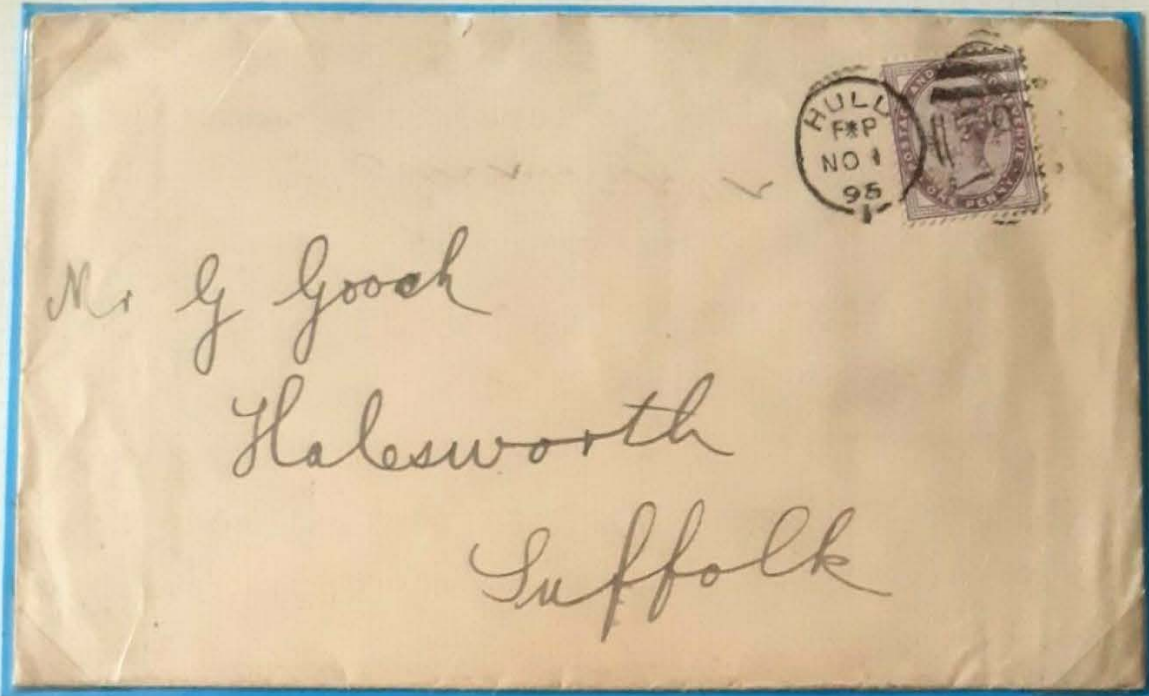 HULL
F*P
NO 1
95
1
POSTAGE AND REVENUE
ONE PENNY
Mr G Gooch
Halesworth
Suffolk